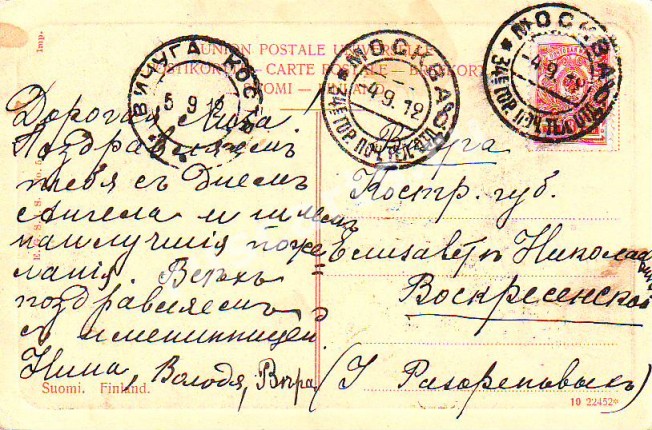 UNION POSTALE UNIVERSELLE
POSTIKORTTI – CARTE POSTALE –
SUOMI – FINLAND
Imp.
ВИЧУГА КОСТР.
5 9 12
МОСКВА
4.9.12
34Е ГОР. ПОЧ. ТЕЛ. ОТД.
МОСКВА
4.9.12
34Е ГОР. ПОЧ. ТЕЛ. ОТД.
Дорогая Лиза
Поздравляемъ
тебя съ Днемъ
Ангела и шлемъ
наилучшія поже
ланія. Всѣхъ
поздравляемъ
съ именинницей
Нина, Володя, Вѣра
Вичуга
Костр. губ.
Елизаветѣ Николаевнѣ
Воскресенской
(У Разореновыхъ)
Suomi. Finland.
10 22452*